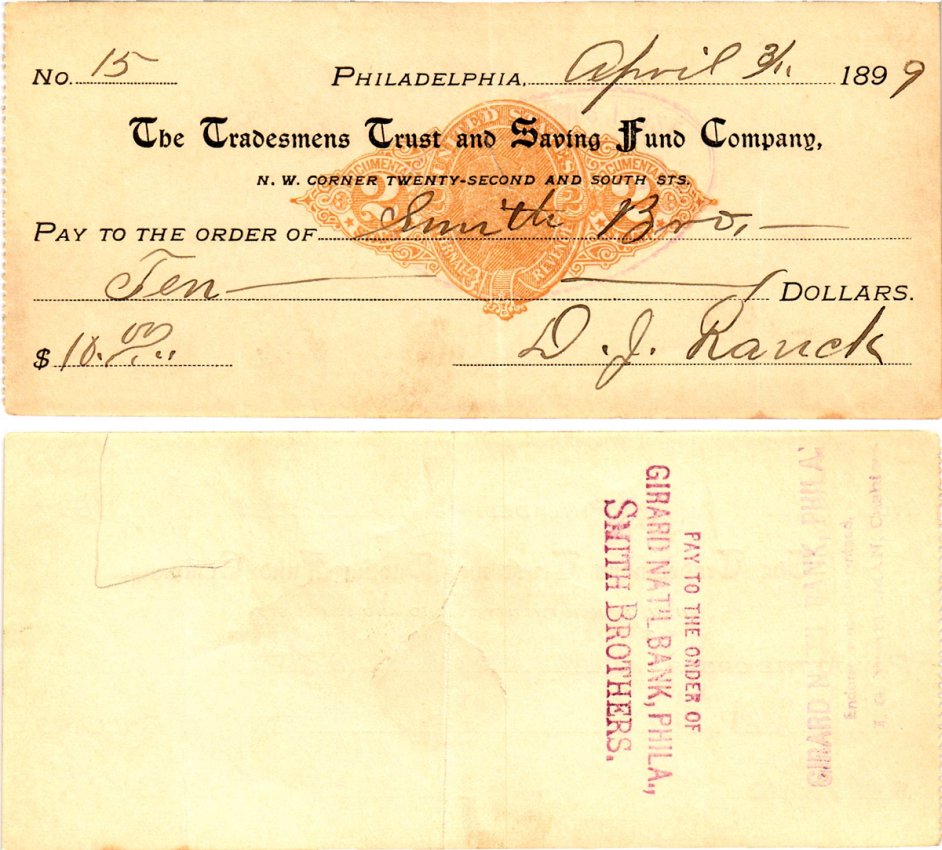 No. 15 PHILADELPHIA, April 3/11 1899
The Tradesmens Trust and Saving Fund Company,
N. W. CORNER TWENTY-SECOND AND SOUTH STS.
PAY TO THE ORDER OF Smith Bro,
Ten DOLLARS.
$ 10.00
D. J. Ranck
UNITED STATES
DOCUMENTARY
2 2
INTERNAL REVENUE
PAY TO THE ORDER OF
GIRARD NAT'L BANK, PHILA.,
SMITH BROTHERS.
GIRARD NAT'L BANK, PHILA.